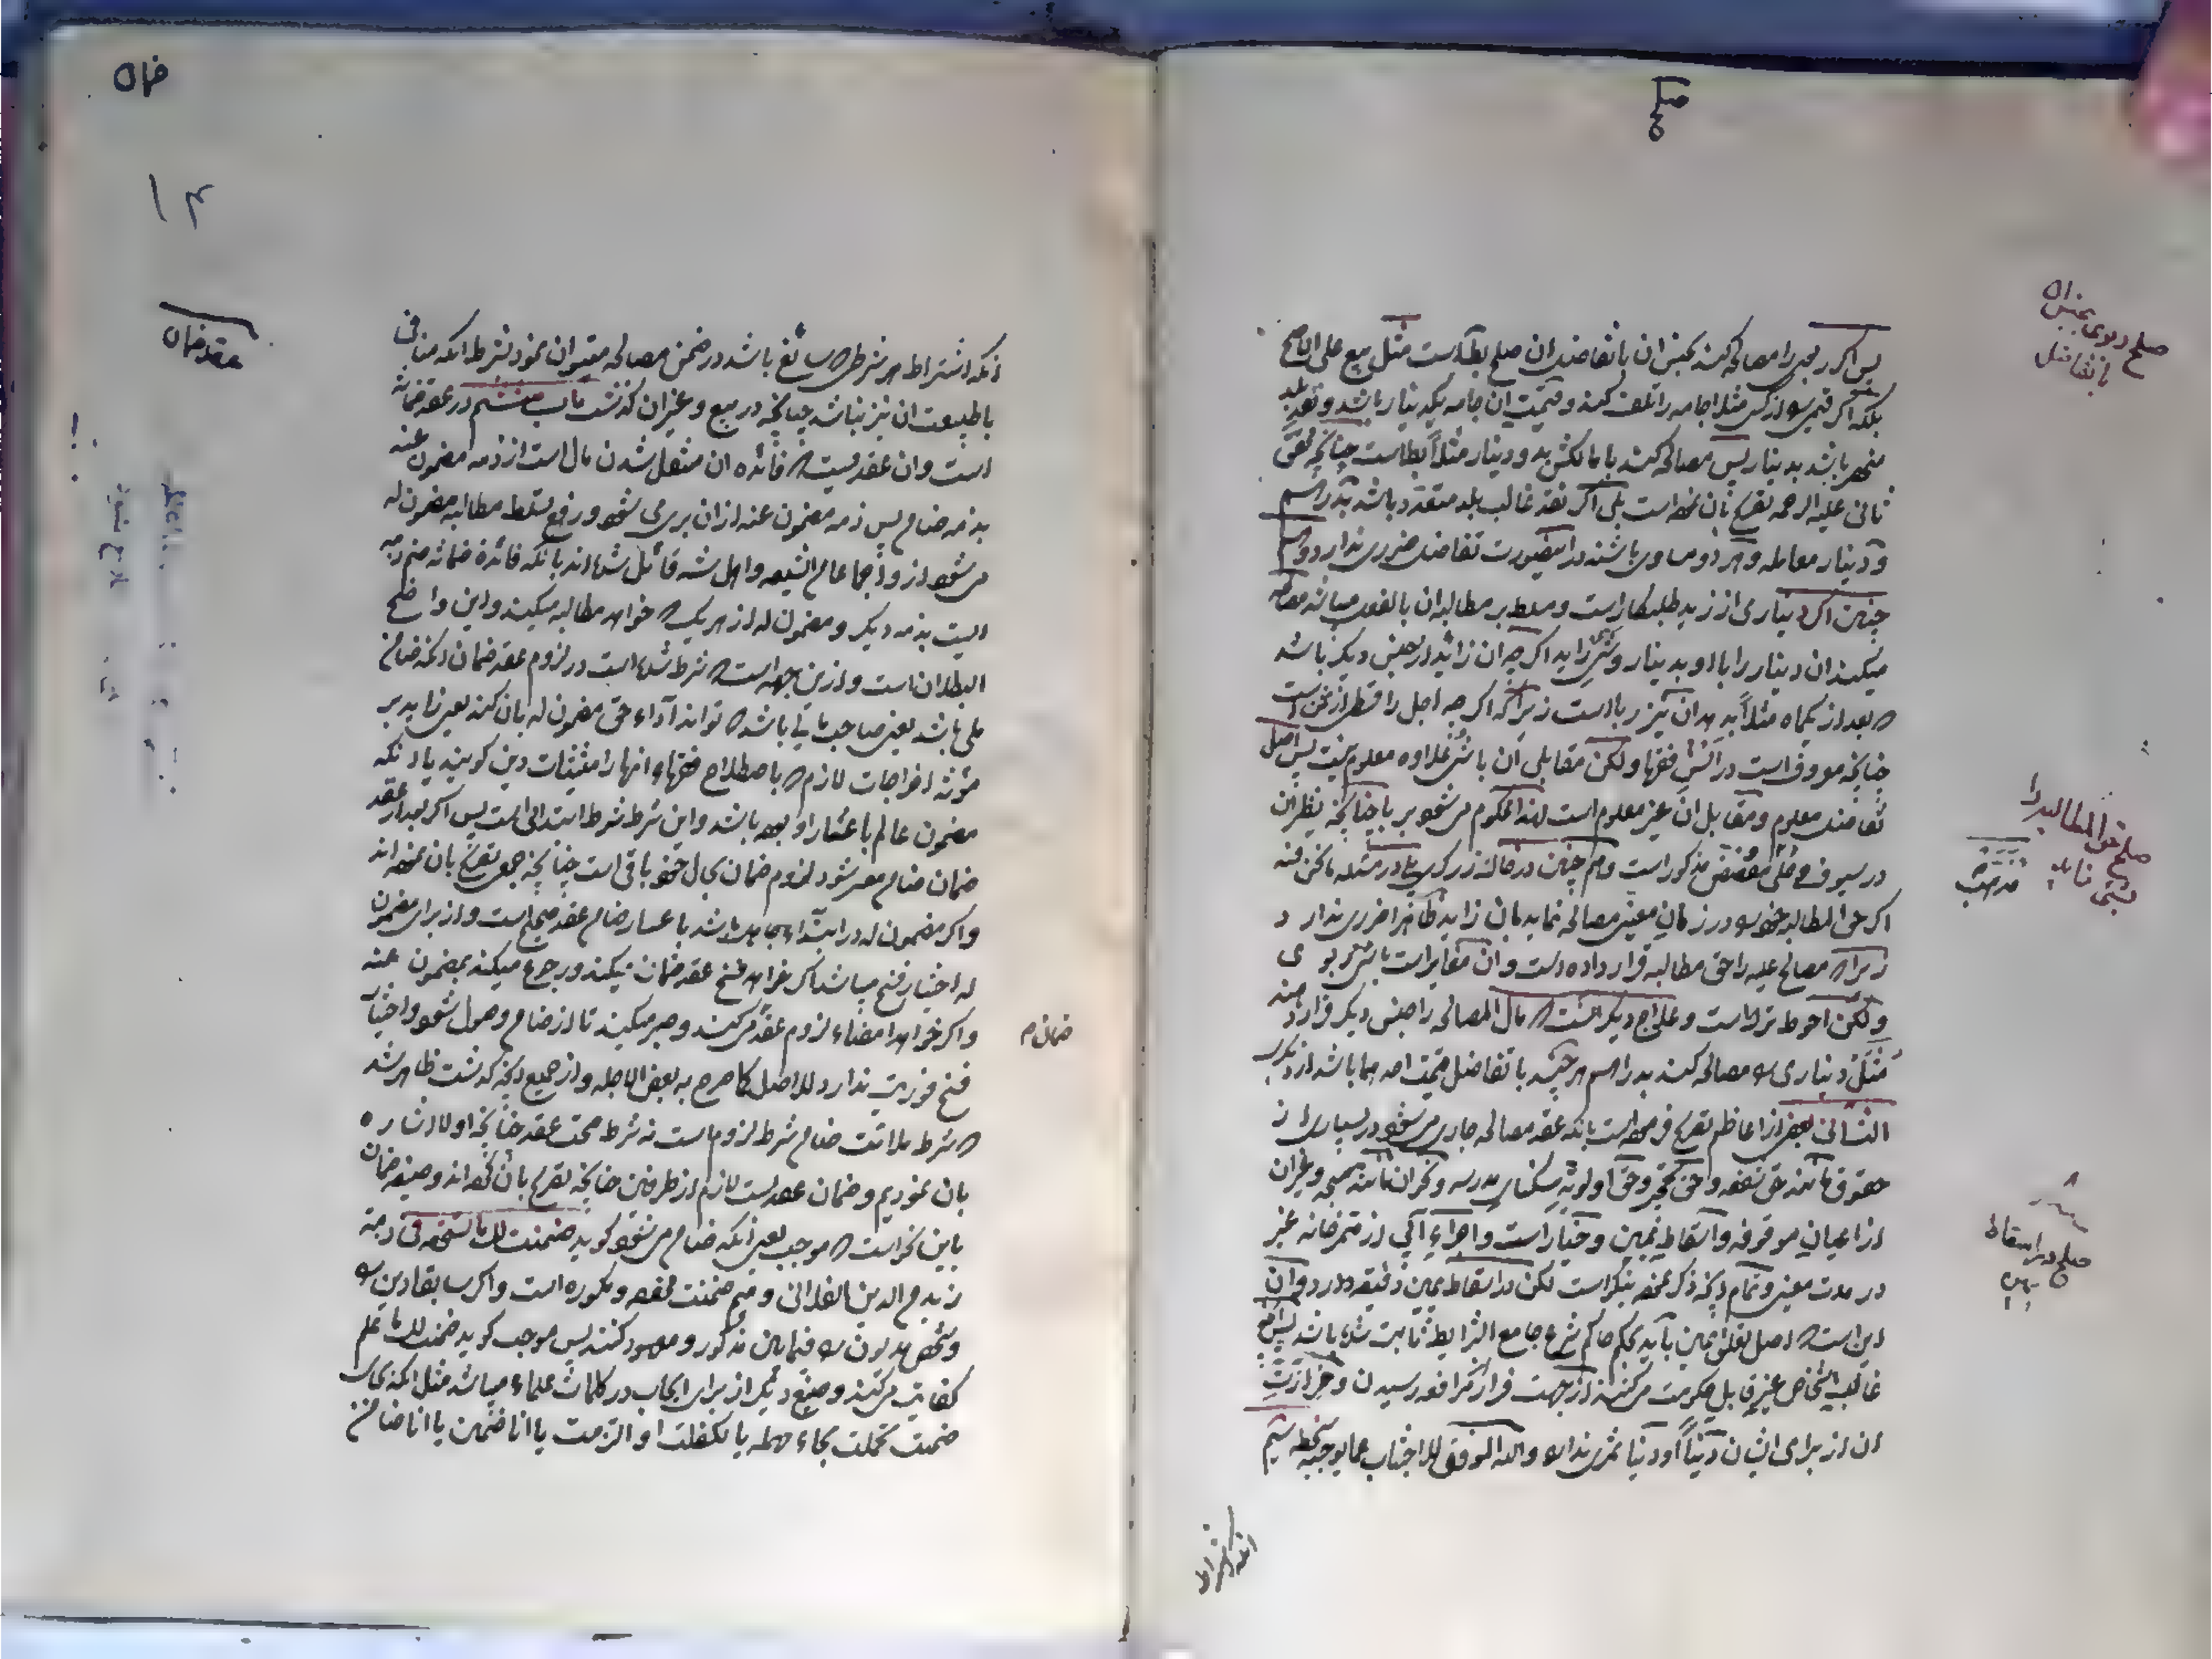 صلح
پس اگر ربوی را مصالحه کند بجنس ان با تفاضل ان صلح باطل است مثل بیع علی الاصح
بلکه اگر قیمی را از کسی مثلا جامه را تلف کند و قیمت ان جامه یکدینار باشد و نقد بلد
منحصر باشد بدینار پس مصالحه کند با مالکش بدو دینار مثلاً باطل است چنانچه محقق
ثانی علیه الرحمه تصریح بان نموده است بلی اگر نقد غالب بلد متعدد باشد بدراهم
و دینار معامله و هر دو مساوی باشند در اینصورت تفاضل ضرری ندارد و هم
چنین اگر دیناری از زید طلبکار است و مسلط بر مطالبه ان بالفعل میباشد مصالحه
میکند ان دینار را با او بدینار و شی زاید اگر چه ان زائد از جنس دیگر باشد
که بعد از یکماه مثلاً بدهد ان نیز ربا است زیرا که اگر چه اجل را قسطی از ثمن است
چنانچه معروف است در السن فقها ولکن مقابلی ان با شی علاوه معلوم نیست پس اصل
تفاضل معلوم و مقابل ان غیر معلوم است لهذا محکوم می شود بر با چنانچه نظیر ان
در سیوف محلی بفضه مذکور است و هم چنین در خاک زرگری بلی در مسئله ما نحن فیه
اگر حق المطالبه خود را در زمان معینی مصالحه نماید بان زاید ظاهرا ضرری ندارد
زیرا که مصالح علیه را حق مطالبه قرار داده است و ان مغایر است با شی ربوی
ولکن احوط ترک است و علاج دیگر انست که مال المصالحه را جنس دیگر قرار دهند
مثل دیناری را مصالحه کند بدراهم هر چند با تفاضل قیمت احدهما باشد از دیگری
الثانی بعض از اعاظم تصریح فرموده است بانکه عقد مصالحه جاری می شود در بسیاری از
حقوق مانند حق شفعه و حق تحجیر و حق اولویه سکنای مدرسه و حجران مانند مسجد و غیر ان
از اعیان موقوفه و اسقاط یمین و خیار است و اجراء آبی از ممر خانه غیر
در مدت معین و تمام انچه ذکر نموده نیکو است لکن در اسقاط یمین دقیقه دارد و ان
این است که اصل تعلق یمین باید بحکم حاکم شرع جامع الشرایط ثابت شده باشد پس صلح
غالب اشخاص غیر قابل حکومت می کنند از جهت فرار از مرافعه رسیدن و حزازت
ان از برای ایشان دیناً او دنیا ثمری ندارد والله الموفق للاجتناب عما یوجب سخطه ششم
انکه اشتراط
صلح ربوی بجنس ان
با تفاضل
صلح حق المطالبه را
بشی زاید
صلح در اسقاط
یمین
ضمان
۱۴
عقد ضمان
انکه اشتراط هر شرطی که سائغ باشد در ضمن مصالحه میتوان نمود بشرط انکه منافی
با طبیعت ان نیز نباشد چنانچه در بیع و غیر ان گذشت باب هشتم در عقد ضمانه
است و ان عقدیست که فائده ان منتقل شدن مال است از ذمه مضمون عنه
بذمه ضامن پس ذمه مضمون عنه از ان بری می شود و رفع تسلط مطالبه مضمون له
می شود از و اجماعا عالم الشیعه و اهل سنه قائل شده اند بانکه فائده ضمانه ضم ذمه
ایست بذمه دیگر و مضمون له از هر یک که خواهد مطالبه میکند و این واضح
البطلان است و از این جهه است که شرط شده است در لزوم عقد ضمان انکه ضامن
ملی باشد یعنی صاحب مالی باشد که تواند آداء حق مضمون له بان کند یعنی زاید بر
مؤنه اخراجات لازم که باصطلاح فقهاء انها را مستثنیات دین گویند یا انکه
مضمون عالم باعسار او بوده باشد و این شرط شرط ابتدائی است پس اگر بعد از عقد
ضمان ضامن معسر شود لزوم ضمان بحال خود باقی است چنانچه جمعی تصریح بان نموده اند
واگر مضمون له در ابتداء جاهل باشد با عسار ضامن عقد صحیح است و از برای مضمون
له اختیار فسخ میباشد اگر خواهد فسخ عقد ضمان میکند و رجوع میکند بمضمون عنه
واگر خواهد امضاء لزوم عقد می کند و صبر میکند تا از ضامن وصول شود و اختیار
فسخ فوریت ندارد للاصل کما صرح به بعض الاجله و از جمیع انچه گذشت ظاهر شد
که شرط ملائت ضامن شرط لزوم است نه شرط صحت عقد چنانچه اولا اشاره
بان نمودیم و ضمان عقدیست لازم از طرفین چنانچه تصریح بان نموده اند و صیغه ضمان
باین نحو است که موجب یعنی انکه ضامن می شود گوید ضمنت لک ما تستحقه فی ذمة
زید من الدین الفلانی و میم ضمنت مخففه و مکسوره است و اگر سابقا دین را
و شخص مدیون را فیما بین مذکور و معهود کنند پس موجب گوید ضمنت لک ما علم
کفایت می کند و صیغ دیگر از برای ایجاب در کلمات علماء میباشد مثل انکه بجای
ضمنت تحملت بحاء مهمله یا تکفلت او التزمت یا انا ضمین یا انا ضامن
ضمان م